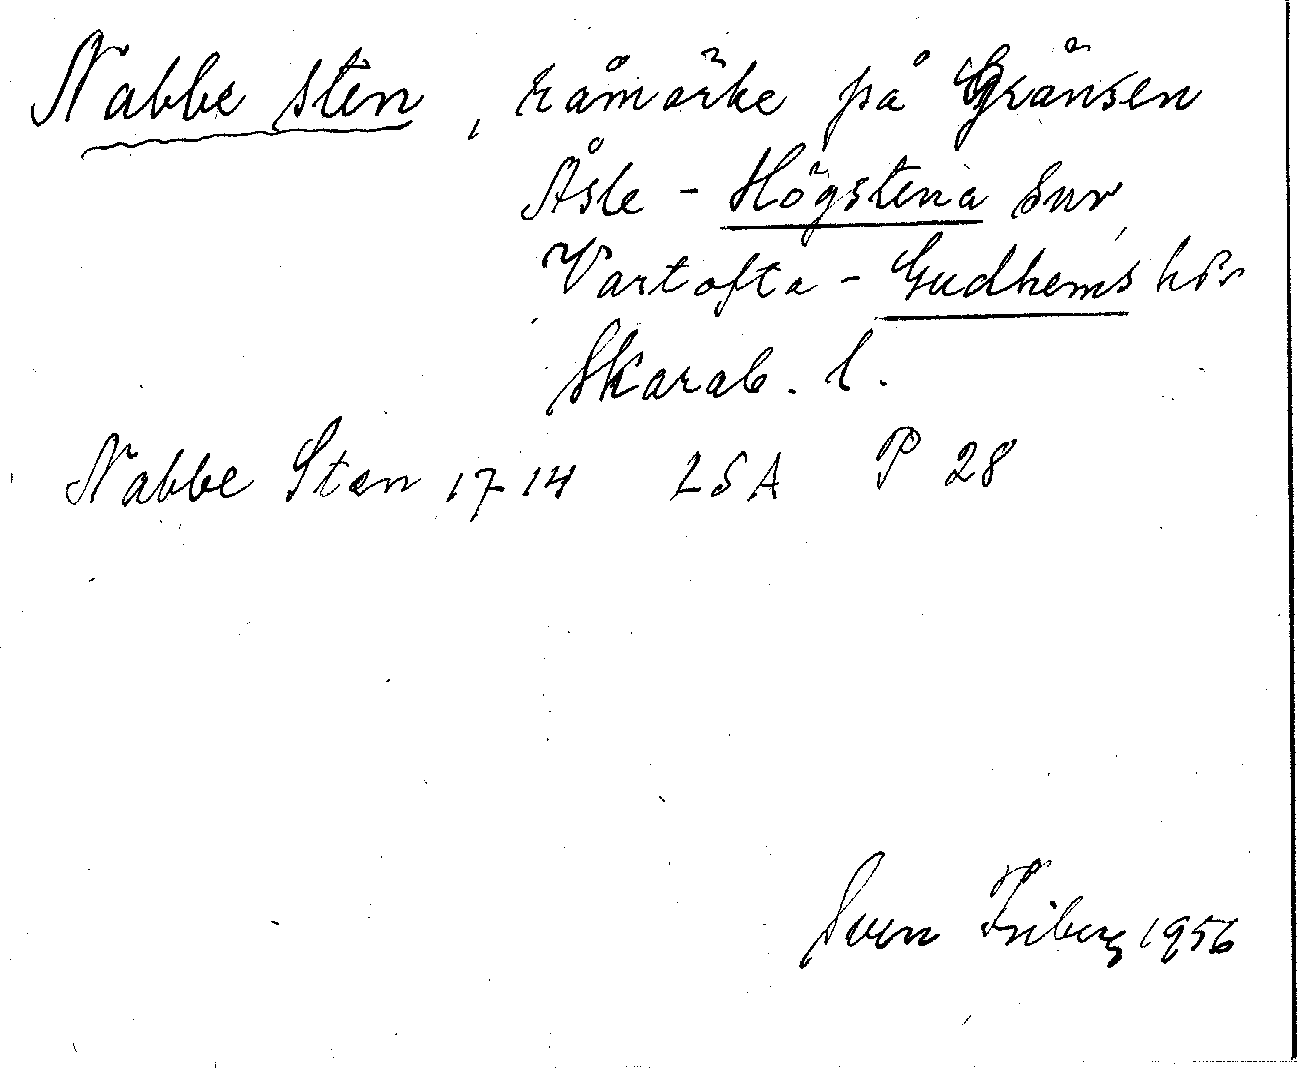 Nabbe sten, råmärke på Gränsen
Åsle - Högstena snr,
Vartofta - Gudhems hdr
Skarab. l.
Nabbe Sten 1714 LSA P 28
Sven Friberg 1956